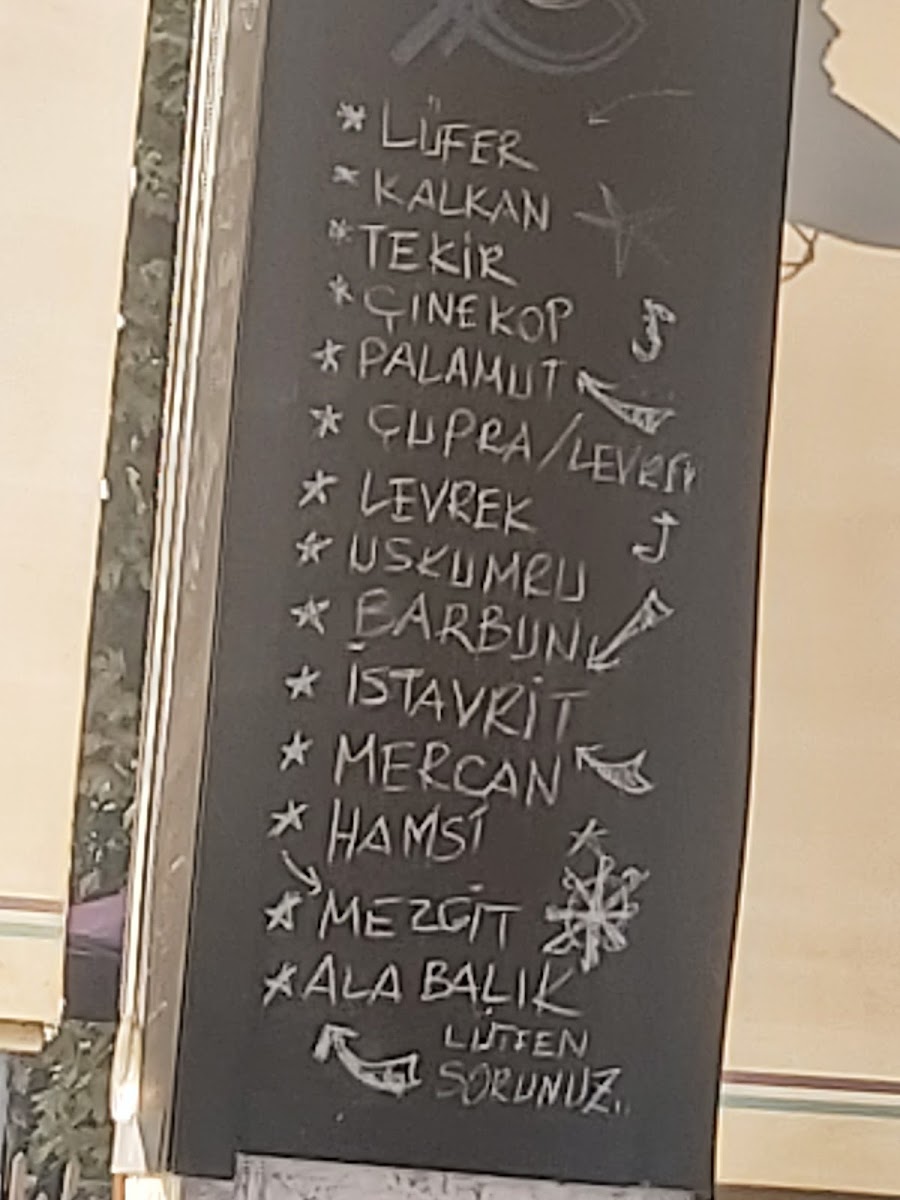 * LÜFER
* KALKAN
* TEKİR
* ÇİNEKOP
* PALAMUT
* ÇUPRA / LEVREK
* LEVREK
* USKUMRU
* BARBUN
* İSTAVRİT
* MERCAN
* HAMSİ
* MEZGİT
* ALA BALIK
LÜTFEN
SORUNUZ..